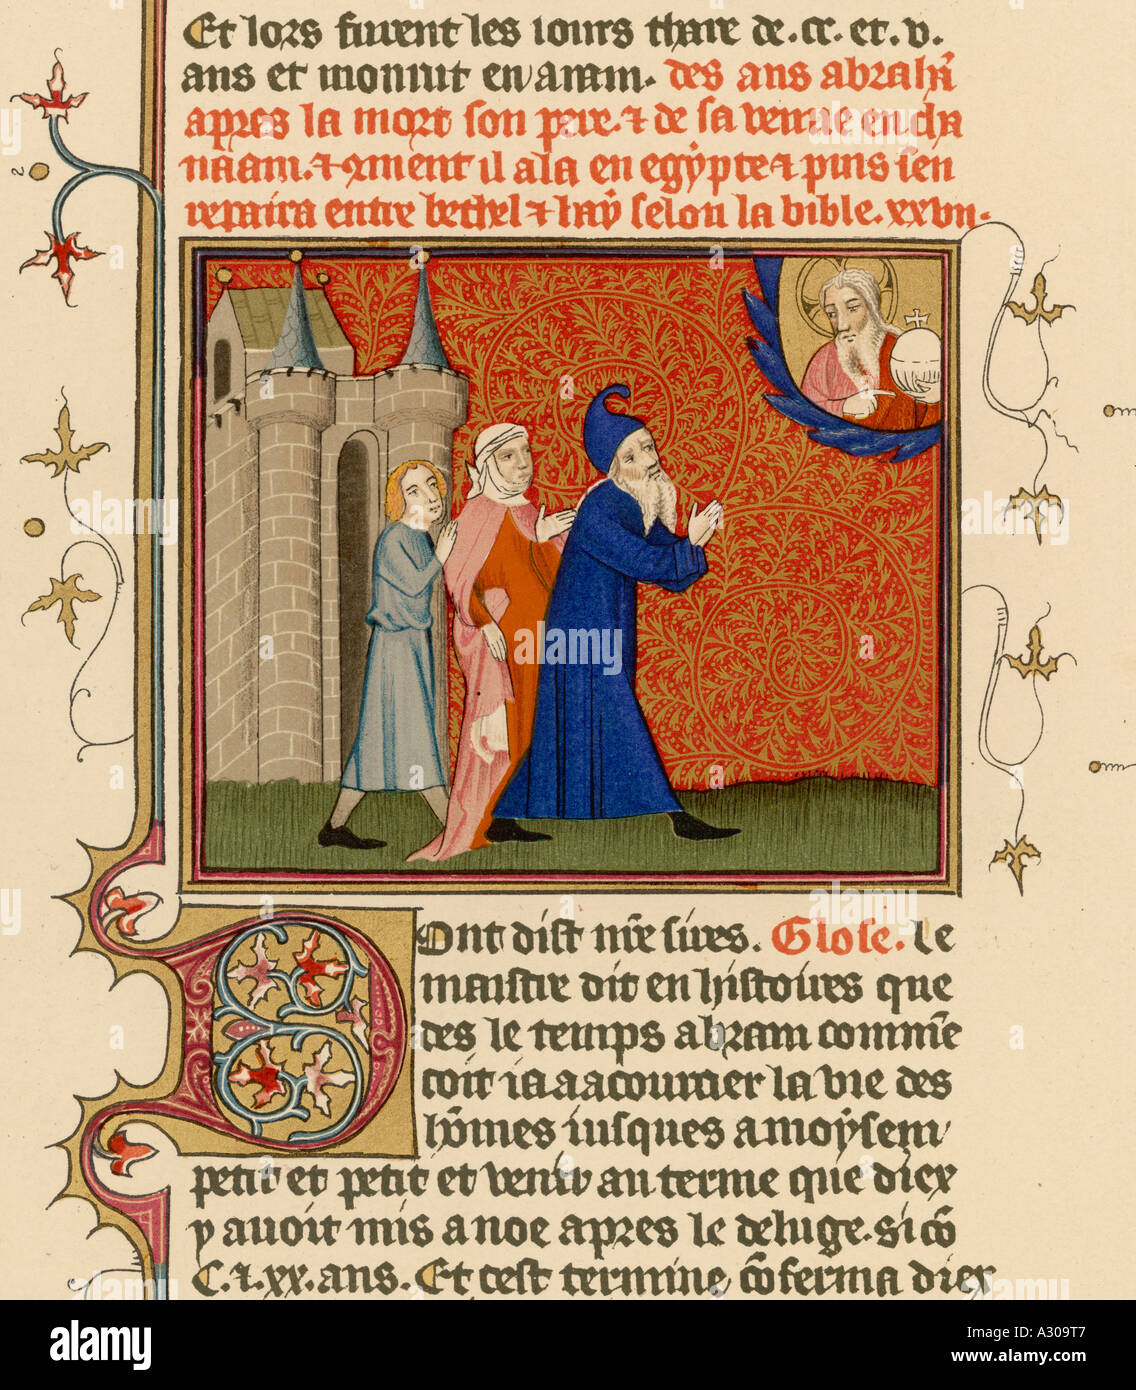 Et lors furent les iours thare de .cc. et .v.
ans et morut en aram. des ans abrahā
apres la mort son pere. ⁊ de sa venue en cha
naam. ⁊ 9ment il ala en egypte ⁊ puis sen
repaira entre bethel ⁊ hay selon la bible. xxvii.
Dont dist mr̄e sires. Glose. Le
maistre dit en histoires que
des le temps abram comme
coit ia a acourcier la vie des
hōmes iusques a moysem
petit et petit et venir au terme que diex
y auoit mis a noe apres le deluge. si cō
C. ⁊. xx. ans. Et cest termine cōferma diex
alamy
Image ID: A309T7
www.alamy.com